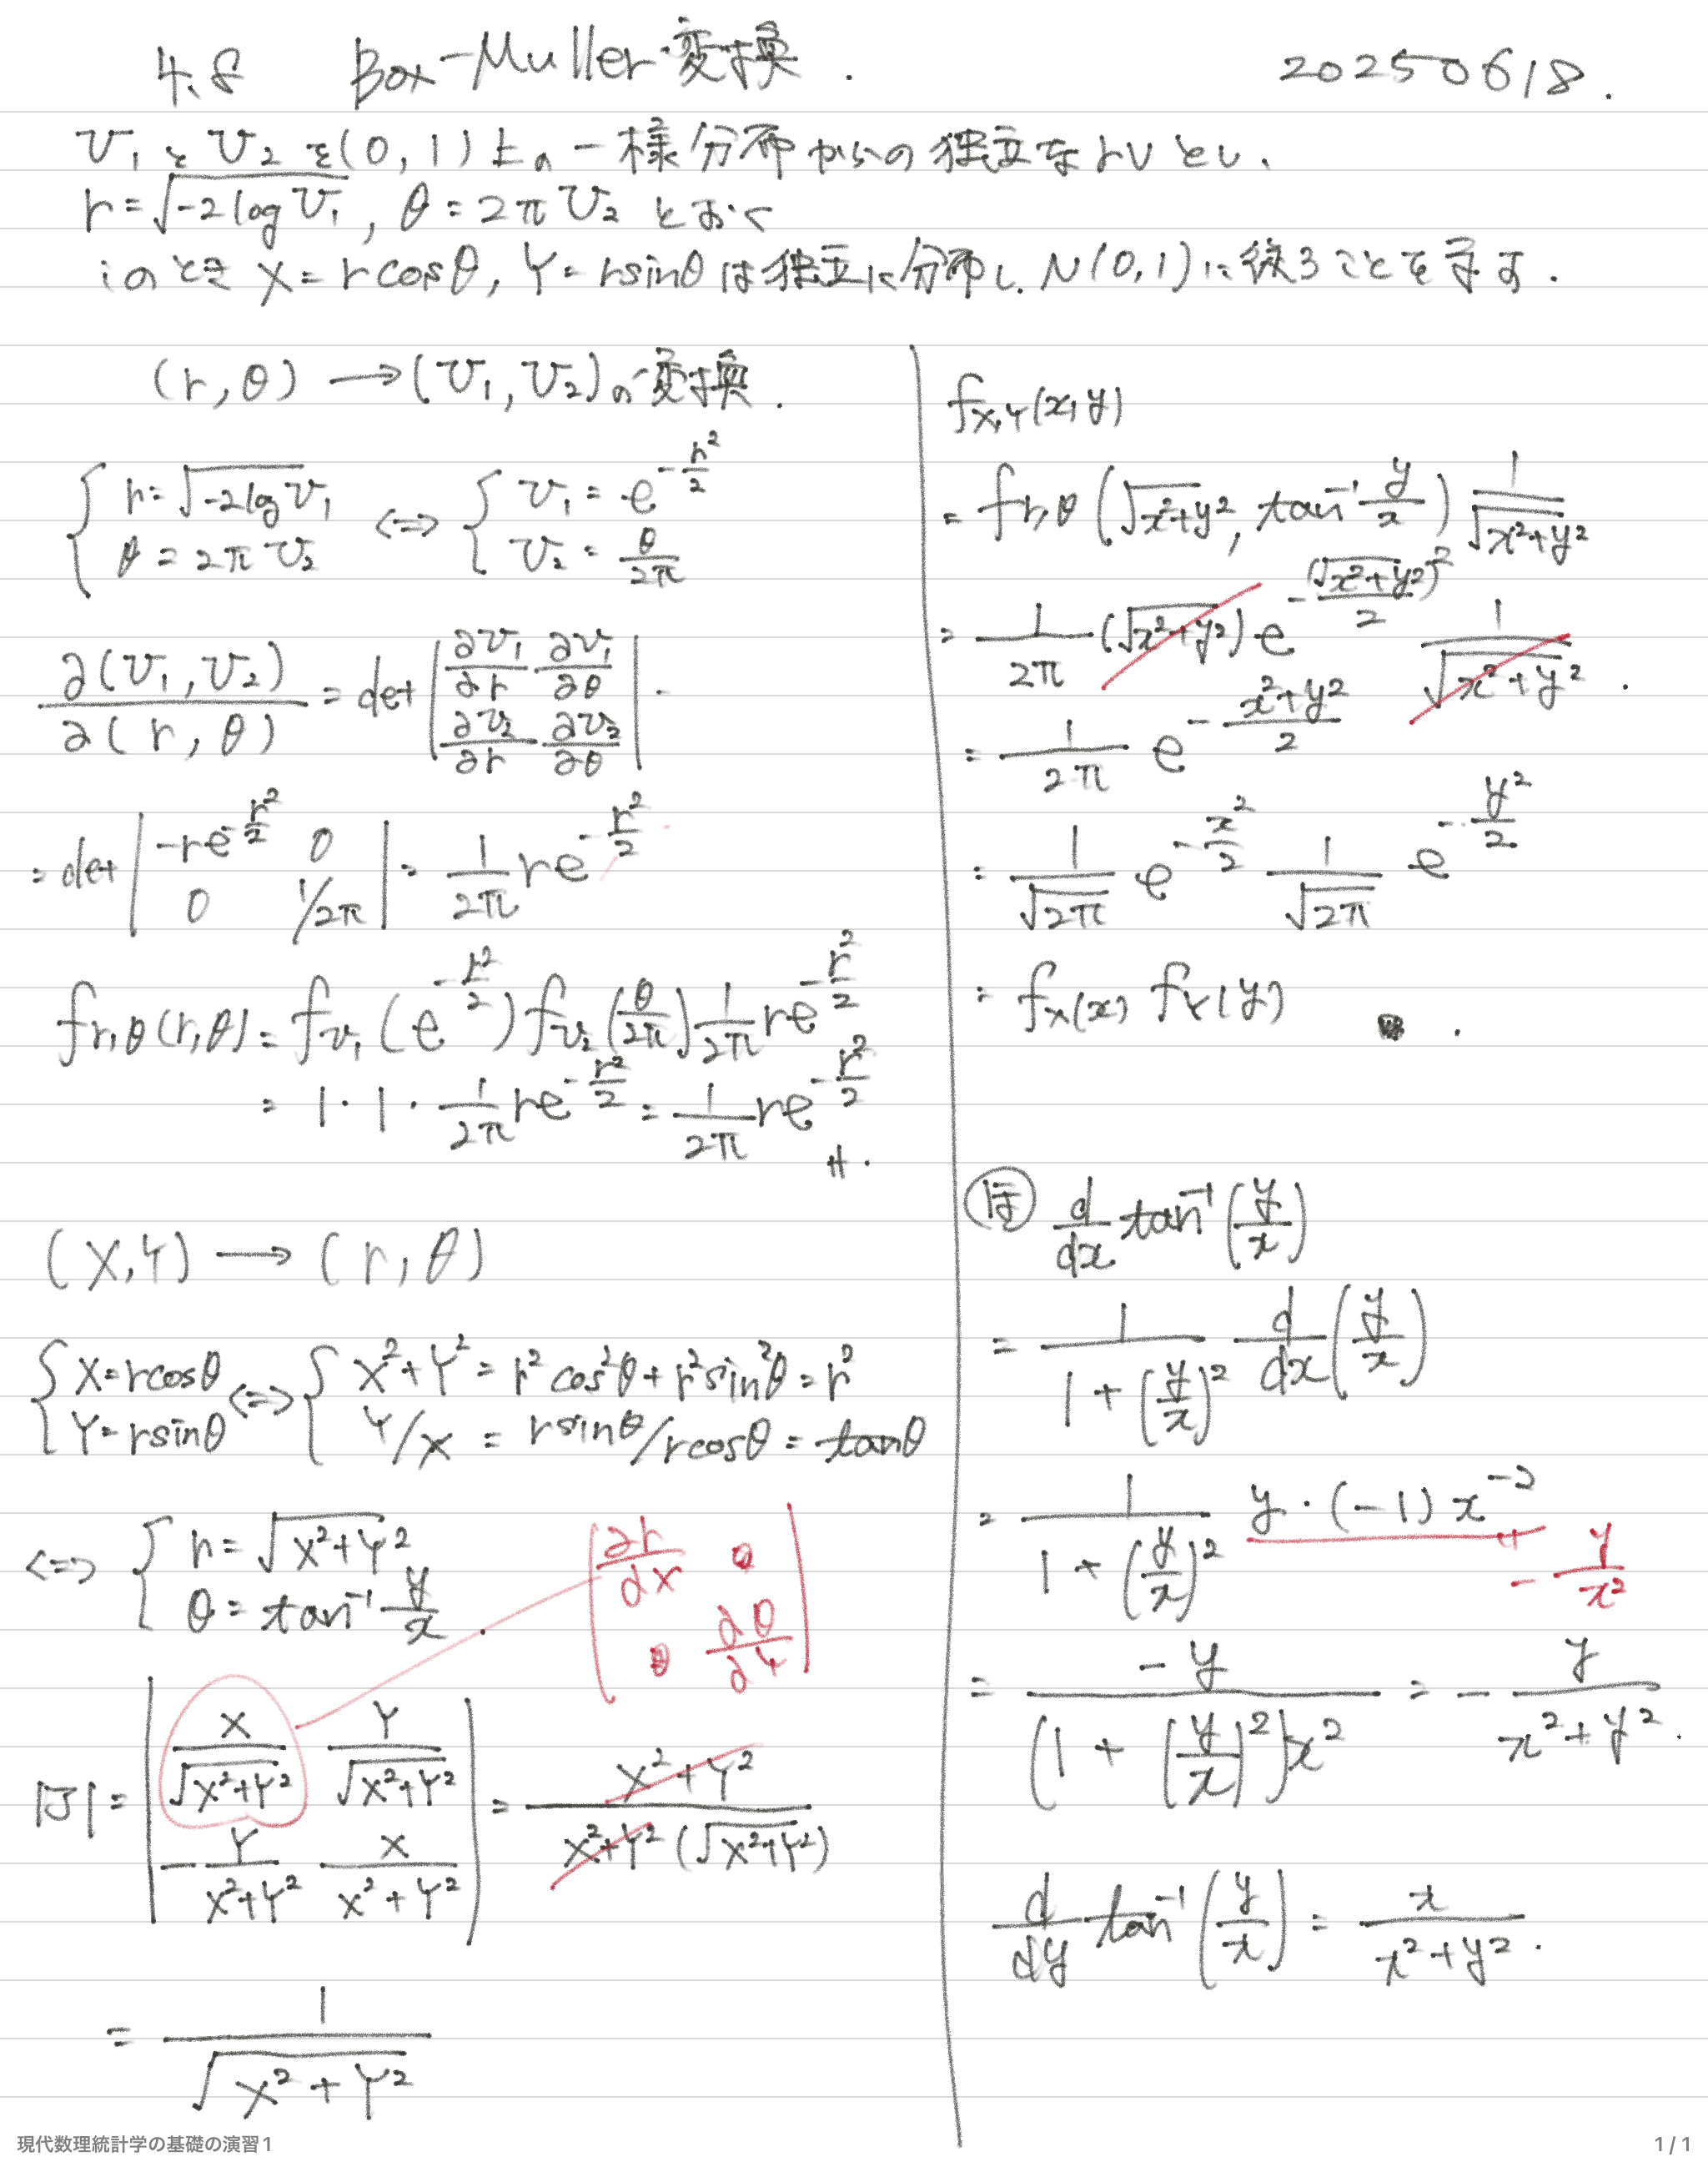 4.8 Box-Muller変換. 20250618.
U₁とU₂を(0,1)上の一様分布からの独立なrvとし、
r=√(-2logU₁), θ=2πU₂とおく
このとき X=rcosθ, Y=rsinθは独立に分布し、N(0,1)に従うことを示す.
(r,θ)→(U₁,U₂)の変換.
{ r=√(-2logU₁) ⇔ { U₁=e^(-r²/2)
θ=2πU₂ U₂=θ/2π
∂(U₁,U₂)/∂(r,θ) = det|∂U₁/∂r ∂U₁/∂θ|
|∂U₂/∂r ∂U₂/∂θ|.
=det|-re^(-r²/2) 0| = 1/2π re^(-r²/2)
|0 1/2π|
f_{r,θ}(r,θ)=f_{U₁}(e^(-r²/2)) f_{U₂}(θ/2π) 1/2π re^(-r²/2)
= 1・1・1/2π re^(-r²/2) = 1/2π re^(-r²/2)
(X,Y)→(r,θ)
{ X=rcosθ ⇔ { X²+Y²=r²cos²θ+r²sin²θ=r²
Y=rsinθ Y/X = rsinθ/rcosθ=tanθ
⇔ { r=√(X²+Y²)
θ=tan⁻¹ y/x.
|∂r/∂X
∂θ/∂Y|
|J|=|X/√(X²+Y²) Y/√(X²+Y²)| = X²+Y²/X²+Y²(√(X²+Y²))
|-Y/X²+Y² X/X²+Y²|
= 1/√(X²+Y²)
f_{X,Y}(x,y)
= f_{r,θ}(√(x²+y²), tan⁻¹ y/x) 1/√(x²+y²)
= 1/2π (√(x²+y²)) e^(-(√(x²+y²))²/2) 1/√(x²+y²).
= 1/2π e^(-(x²+y²)/2)
= 1/√2π e^(-x²/2) 1/√2π e^(-y²/2)
= f_X(x) f_Y(y) ■.
ほ d/dx tan⁻¹(y/x)
= 1/(1+(y/x)²) d/dx(y/x)
= 1/(1+(y/x)²) y・(-1)x⁻²
-y/x²
= -y/((1+(y/x)²)x²) = -y/(x²+y²).
d/dy tan⁻¹(y/x) = x/(x²+y²).
現代数理統計学の基礎の演習1
1/1